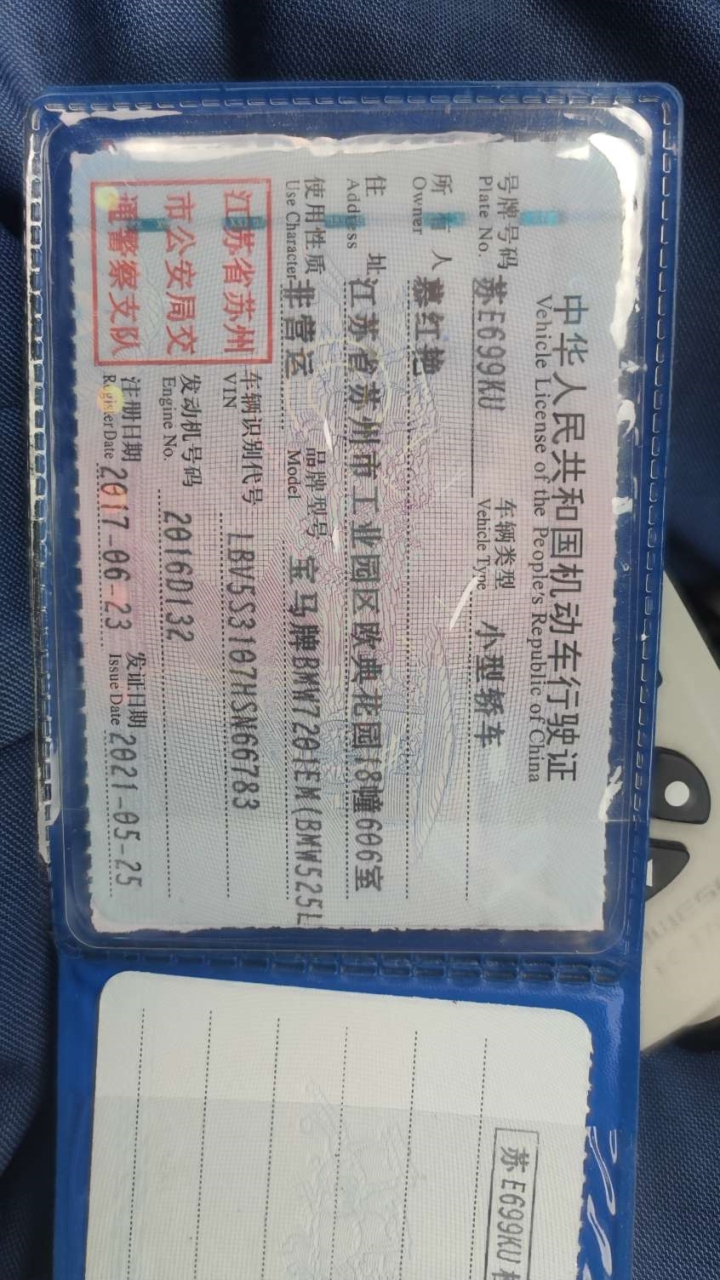 中华人民共和国机动车行驶证
Vehicle License of the People's Republic of China
号牌号码 苏E699KU 车辆类型 小型轿车
Plate No. Vehicle Type
所有人 慕红艳
Owner
住址 江苏省苏州市工业园区欧典花园18幢606室
Address
使用性质 非营运 品牌型号 宝马牌BMW7201EM(BMW525L
Use Character Model
江苏省苏州
市公安局交
通警察支队
车辆识别代号 LBV5S3107HSN66783
VIN
发动机号码 2016D132
Engine No.
注册日期 2017-06-23 发证日期 2021-05-25
Register Date Issue Date
苏E699KU